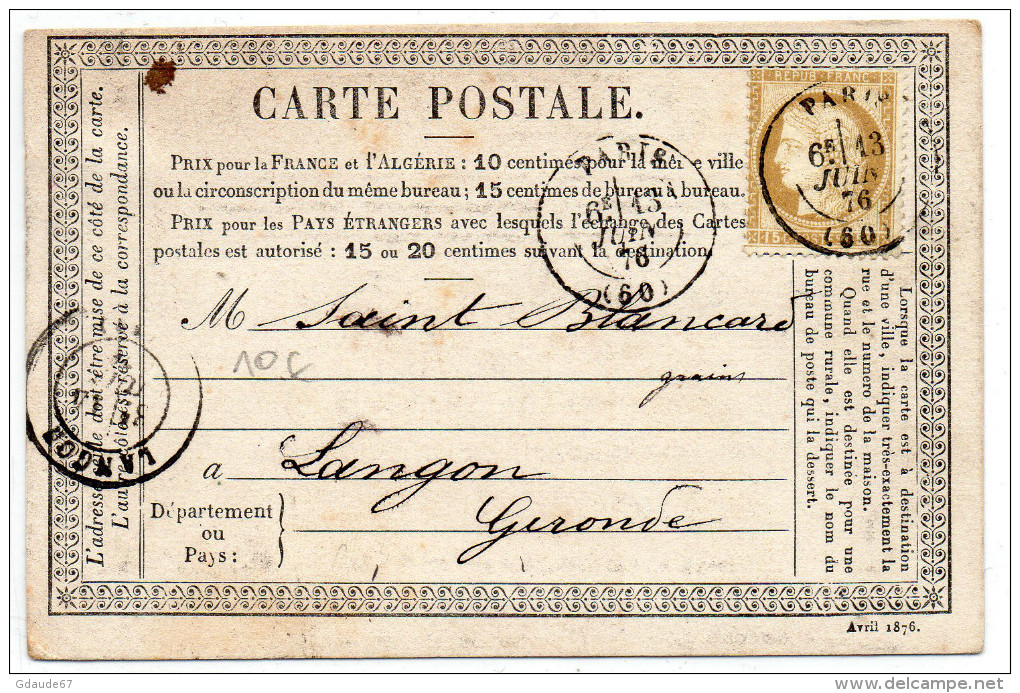 CARTE POSTALE.
PRIX pour la FRANCE et l'ALGÉRIE : 10 centimes pour la même ville
ou la circonscription du même bureau; 15 centimes de bureau à bureau.
PRIX pour les PAYS ÉTRANGERS avec lesquels l'échange des Cartes
postales est autorisé : 15 ou 20 centimes suivant la destination.
REPUB FRANC
15
PARIS
6E 13
JUIN
76
(60)
PARIS
6E 13
JUIN
76
(60)
M Saint Blancard
10 c
grains
a Langon
Gironde
Département
ou
Pays :
L'adresse seule doit être mise de ce côté de la carte.
L'autre côté est réservé à la correspondance.
LANGON
Lorsque la carte est à destination
d'une ville, indiquer très-exactement la
rue et le numero de la maison.
Quand elle est destinée pour une
commune rurale, indiquer le nom du
bureau de poste qui la dessert.
Avril 1876.
Gdaude67
www.delcampe.net